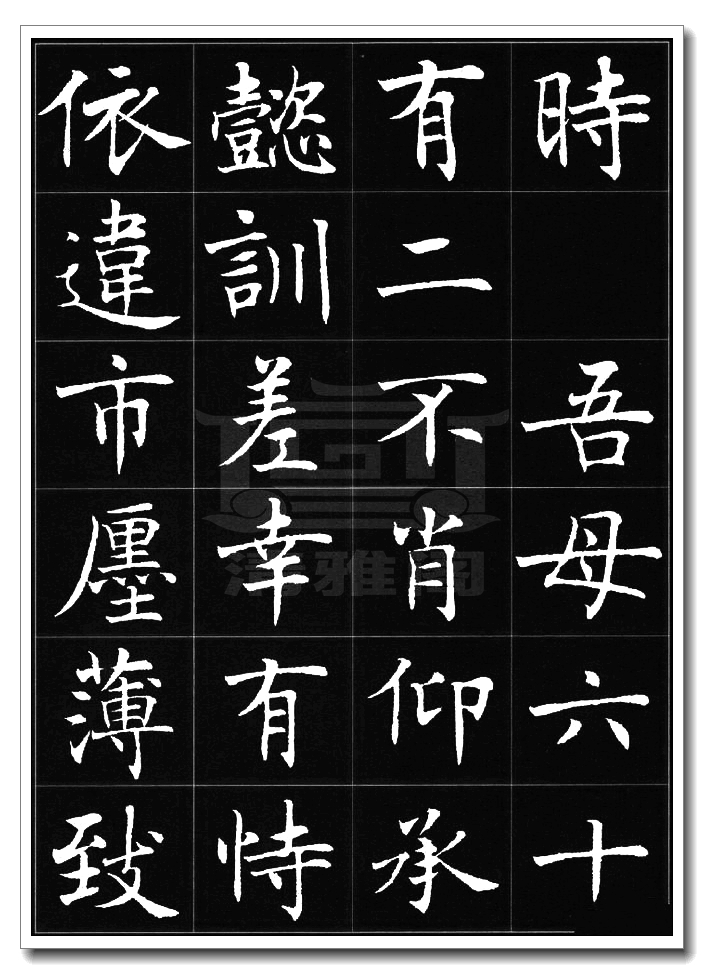 時 吾母六十
有二不肖仰承
懿訓差幸有恃
依違市廛薄致
清雅阁